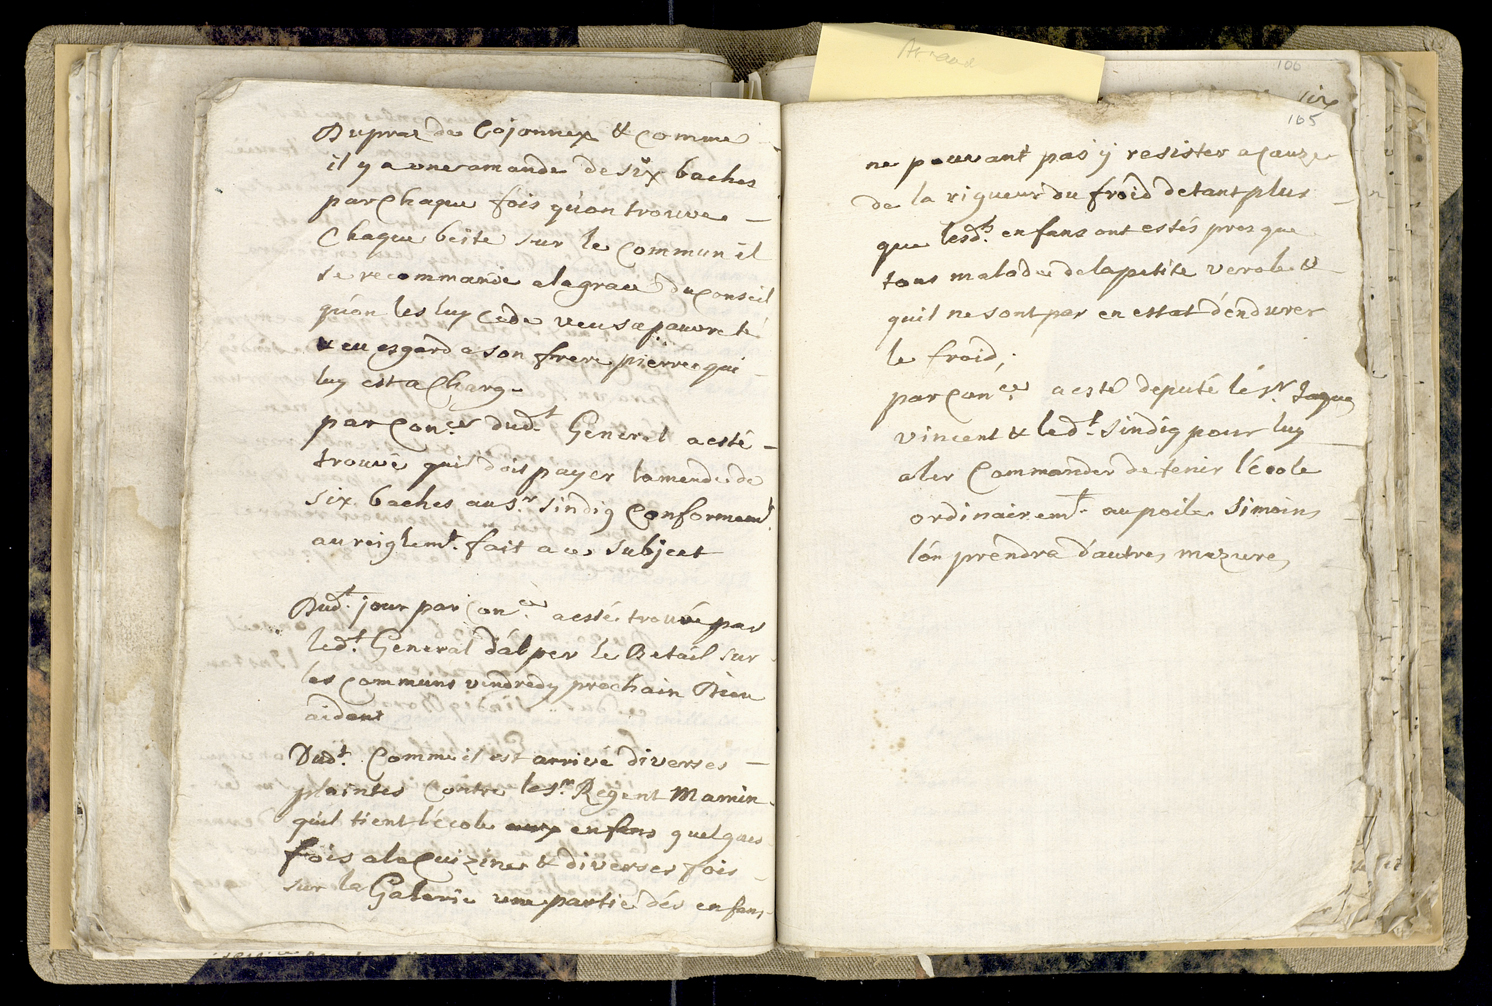 Duprat de Cojonnex & comme
il y a une amande de six baches
par chaque fois qu'on trouve
chaque beste sur le commun il
se recommande a la grace du Conseil
qu'on les luy cede veu sa pauvreté
& eu esgard a son frere pierre qui
luy est a charge
par Con.ce dud.t General a esté
trouvé quil doit payer lamende de
six baches au S.r sindiq Conformem.t
au reiglem.t fait a ce subject
Dud.t jour par Con.ce a esté trouvé par
led.t General d'alper le Betail sur
les communs vendredy prochain Dieu
aidant
Dud.t Comme il est arrivé diverses
plaintes contre le S.r Regent Mamin
quil tient lécole aux enfans quelques
fois a la Cuizine & diverses fois
sur la Galerie une partie dés enfans
Arnaud
106
105
ne pouvant pas y resister a cauze
de la rigueur du froid de tant plus
que lesd.ts enfans ont estés presque
tous malades de la petite verole &
quil ne sont pas en estat d'endurer
le froid;
par Con.ce a esté deputé lé S.r Jaques
vincent & led.t sindiq pour luy
aler Commander de tenir l'école
ordinairem.t au poile sinoins
lón prendra d'autres mezures